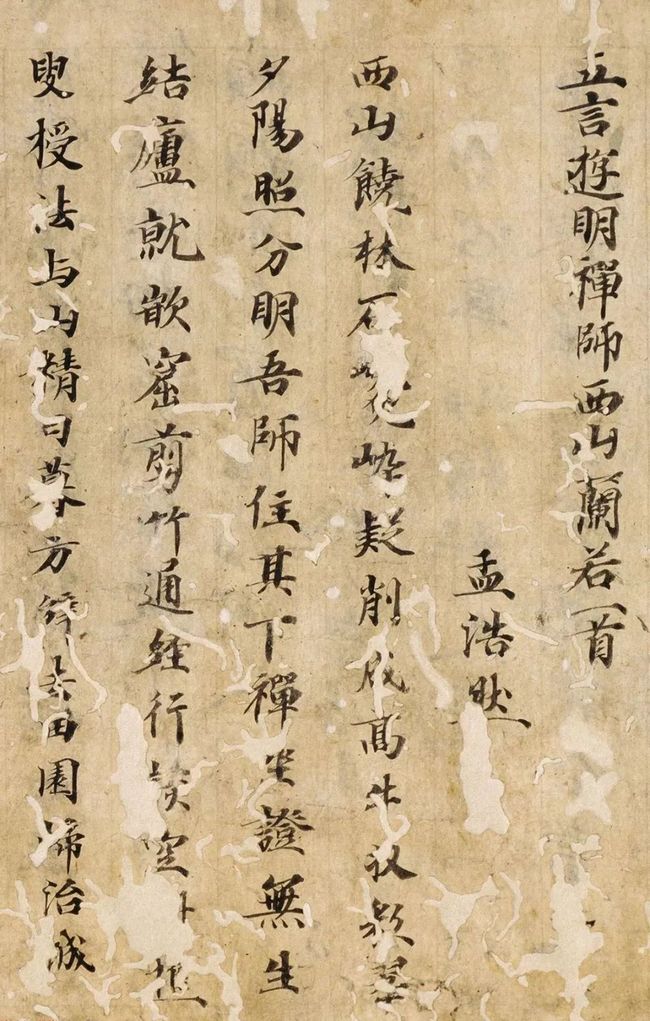 五言遊明禪師西山蘭若一首
孟浩然
西山饒林石崿疑削成高
夕陽照分明吾師住其下禪坐證無生
結廬就嵌窟剪竹通徑行談空
叟授法与山精日暮方辞去田園歸治城